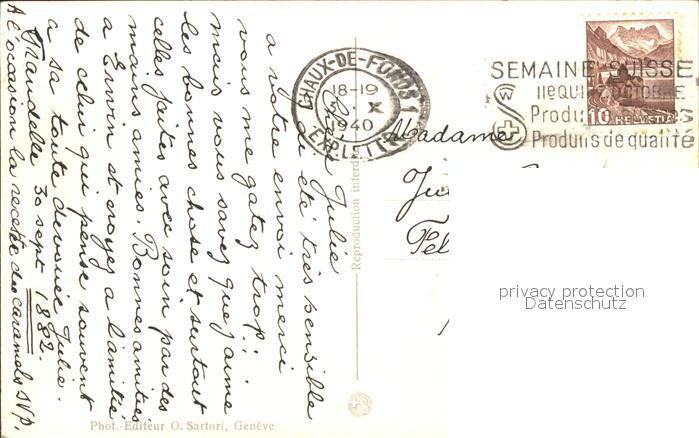 Chère Julie
J'ai été très sensible
à votre envoi merci
vous me gatez trop!!
mais vous savez que j'aime
les bonnes chose et surtout
celles faites avec soin par des
mains amies. Bonnes amitiés
à Erwin et croyez a l'amitié
de celui qui pense souvent
a sa toute devouée Julie.
30 sept. 1882.
A l'occasion la recette des caramels SVP.
Phot.-Editeur O. Sartori, Genève
Reproduction interdi
CHAUX-DE-FONDS 1
18-19
X
1940
EXP. LET
SEMAINE SUISSE
Produits de qualité
10 HELVETIA
Madame
Ju
Fél
privacy protection
Datenschutz